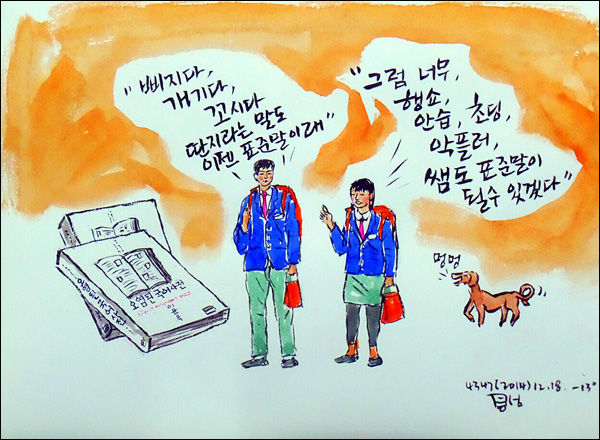 "삐지다,
개기다,
꼬시다
딴지라는 말도
이젠 표준말이래"
"그럼 너무,
행쇼,
안습, 초딩,
악플러,
쌤도 표준말이
될수 있겠다"
멍멍
오염된 국어사전
이윤옥
4347(2014)12.18. -13°